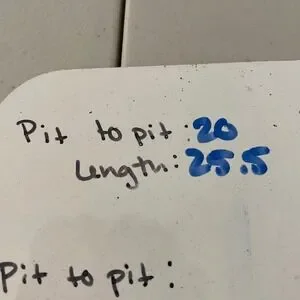 Pit to pit: 20
Length: 25.5
Pit to pit: